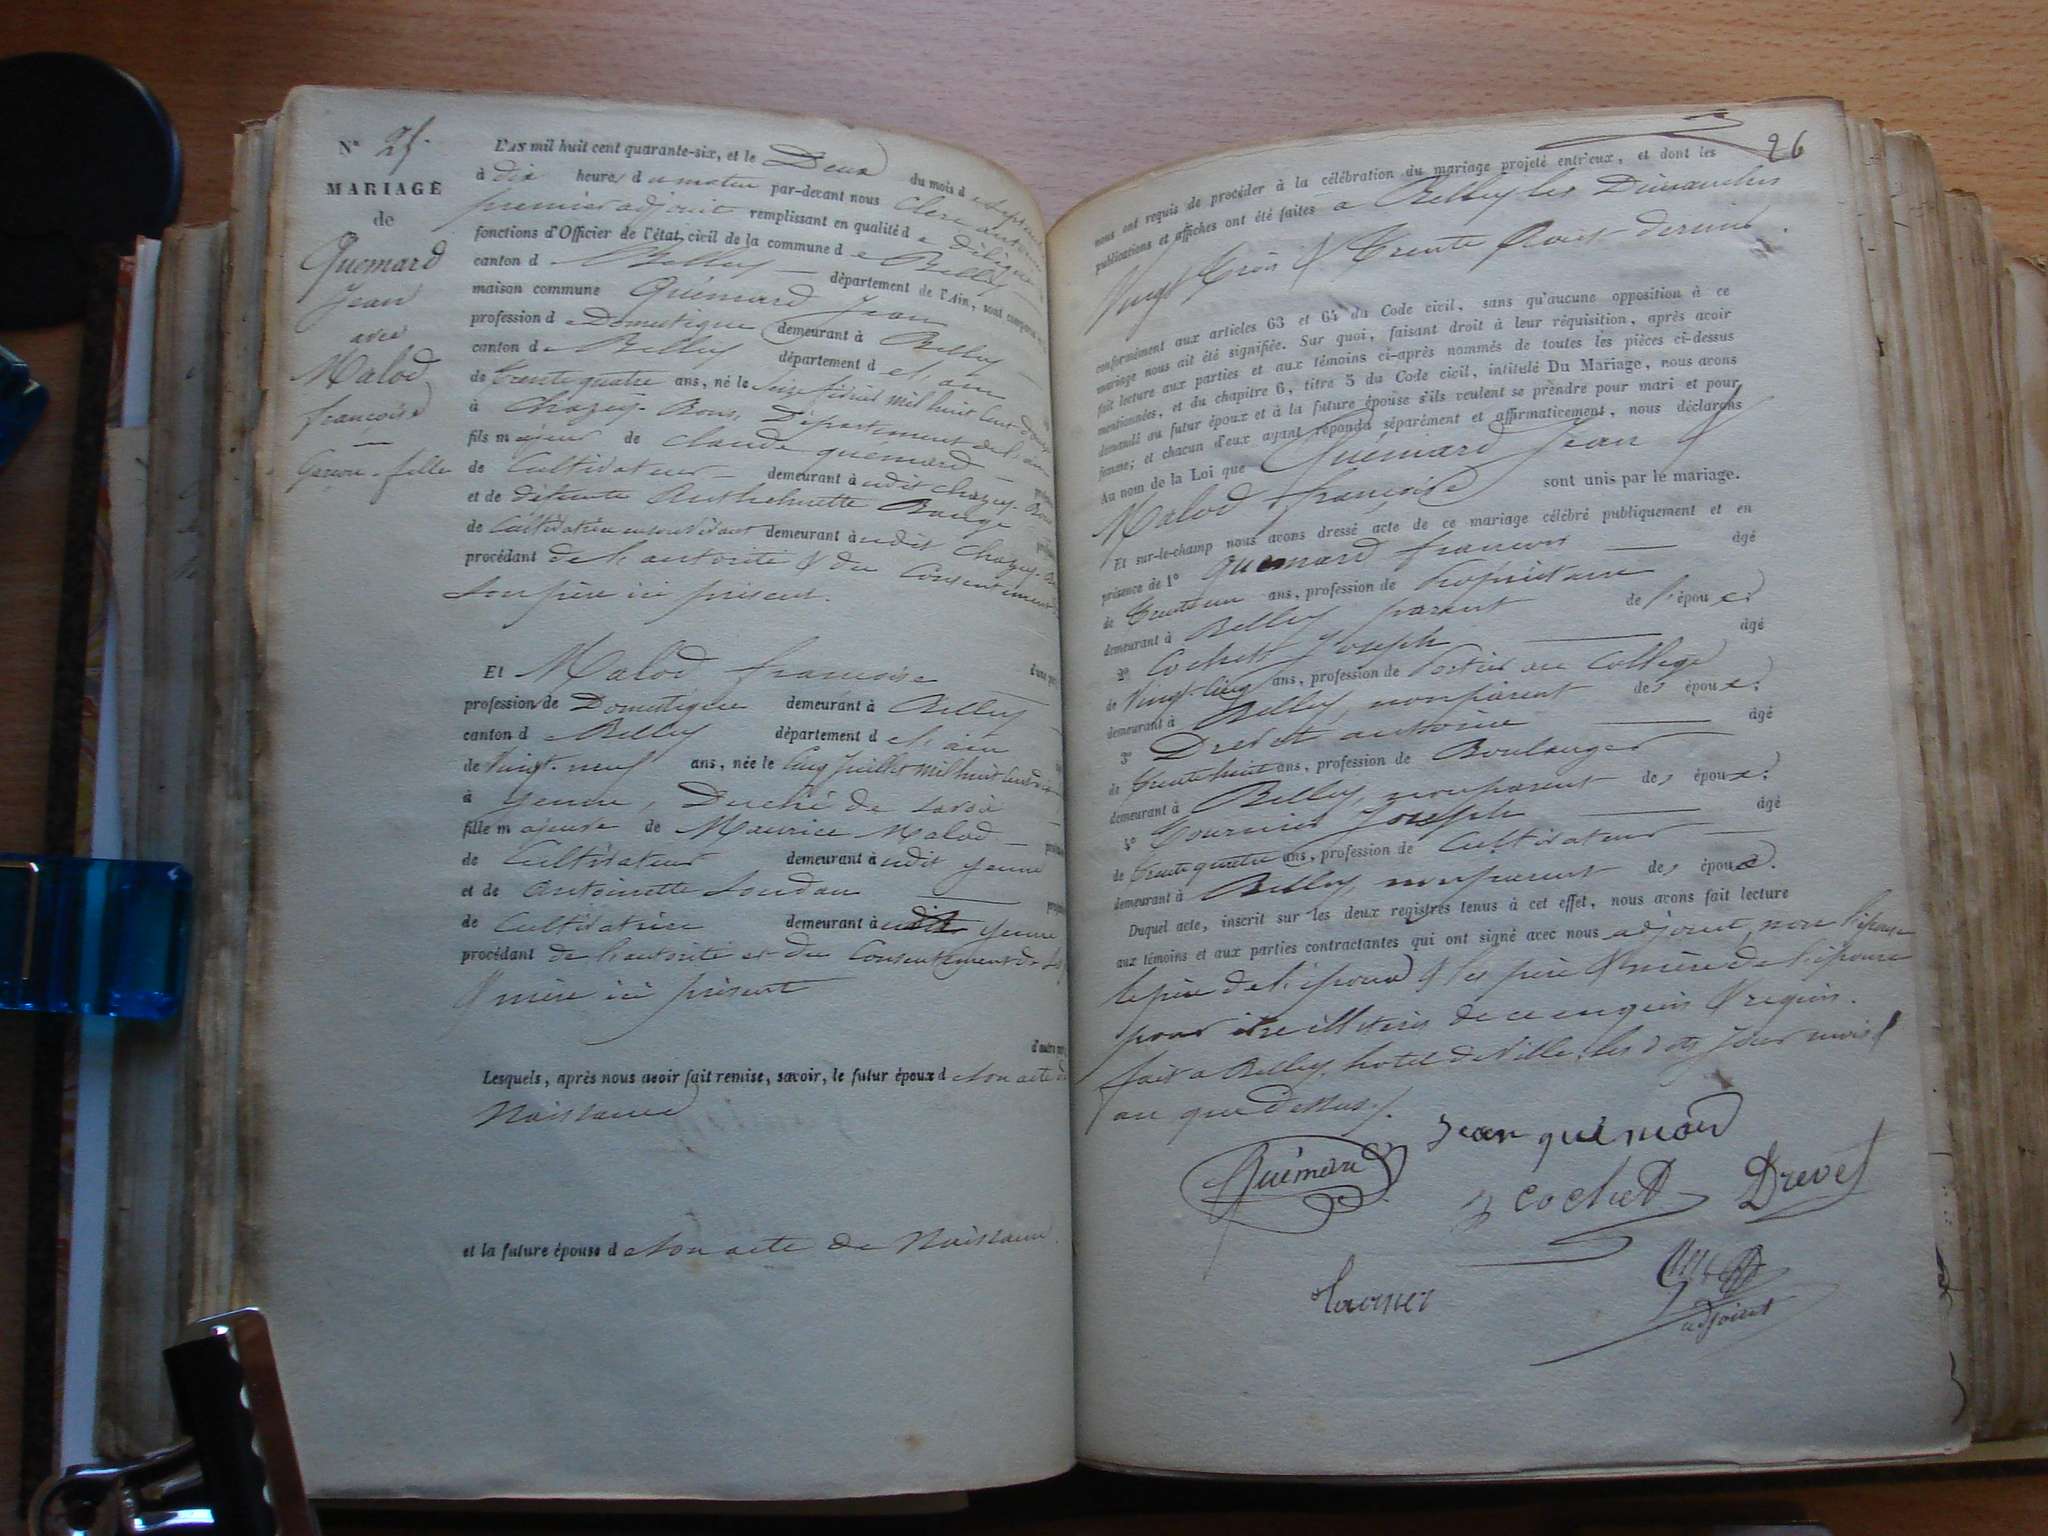 N° 25.
MARIAGE
de
Quemard
Jean
avec
Malod
françoise
Garçon - fille
L'AN mil huit cent quarante-six, et le Deux du mois de septembre
à dix heures du matin par-devant nous Clerc antoine
premier adjoint remplissant en qualité de délégué
fonctions d'Officier de l'état civil de la commune de Belley
canton de Belley département de l'Ain, sont comparus
maison commune Quémard Jean
profession de Domestique demeurant à Belley
canton de Belley département de l'ain
de trente quatre ans, né le seize février mil huit cent douze
à Chazey-Bons, Département de l'ain
fils majeur de Claude quemard
de Cultivateur demeurant à udit Chazey-Bons
et de défunte Anthelmette Bauge
de Cultivatrice en son vivant demeurant à udit Chazey-
procédant de l'autorité & du Consentement
son père ici présent.
d'une part
Et Malod françoise
profession de Domestique demeurant à Belley
canton de Belley département de l'ain
de Vingt-neuf ans, née le Cinq Juillet mil huit cent
à Yenne, Duché de savoie
fille majeure de Maurice Malod
de Cultivateur demeurant à udit Yenne
et de Antoinette
de Cultivatrice demeurant à udit Yenne
procédant de l'autorité et du Consentement de
& mère ici présent
d'autre part
Lesquels, après nous avoir fait remise, savoir, le futur époux de son acte de
Naissance
et la future épouse de son acte de Naissance.
26
nous ont requis de procéder à la célébration du mariage projeté entr'eux, et dont les
publications et affiches ont été faites à Belley les Dimanches
Vingt trois & trente Août dernier.
conformément aux articles 63 et 64 du Code civil, sans qu'aucune opposition à ce
mariage nous ait été signifiée. Sur quoi, faisant droit à leur réquisition, après avoir
fait lecture aux parties et aux témoins ci-après nommés de toutes les pièces ci-dessus
mentionnées, et du chapitre 6, titre 5 du Code civil, intitulé Du Mariage, nous avons
demandé au futur époux et à la future épouse s'ils veulent se prendre pour mari et pour
femme; et chacun d'eux ayant répondu séparément et affirmativement, nous déclarons
Au nom de la Loi que Quémard Jean &
Malod françoise sont unis par le mariage.
Et sur-le-champ nous avons dressé acte de ce mariage célébré publiquement et en
présence de 1° quemard francois âgé
de trente un ans, profession de Propriétaire
demeurant à Belley parent de l'époux.
2° Cochet Joseph âgé
de Vingt-cinq ans, profession de Portier au Collège
demeurant à Belley, non parent des époux.
3° Drevet antoine âgé
de trente huit ans, profession de Boulanger
demeurant à Belley, non parent des époux.
4° Tournier Joseph âgé
de trente quatre ans, profession de Cultivateur
demeurant à Belley, non parent des époux.
Duquel acte, inscrit sur les deux registres tenus à cet effet, nous avons fait lecture
aux témoins et aux parties contractantes qui ont signé avec nous adjoint, non l'épouse
le père de l'époux & les père & mère de l'épouse
pour être illitérés de ce enquis & requis.
fait a Belley, hotel de Ville, les dits jour mois &
an que dessus.
Jean quémard
Quémard
J cochet Drevet
adjoint